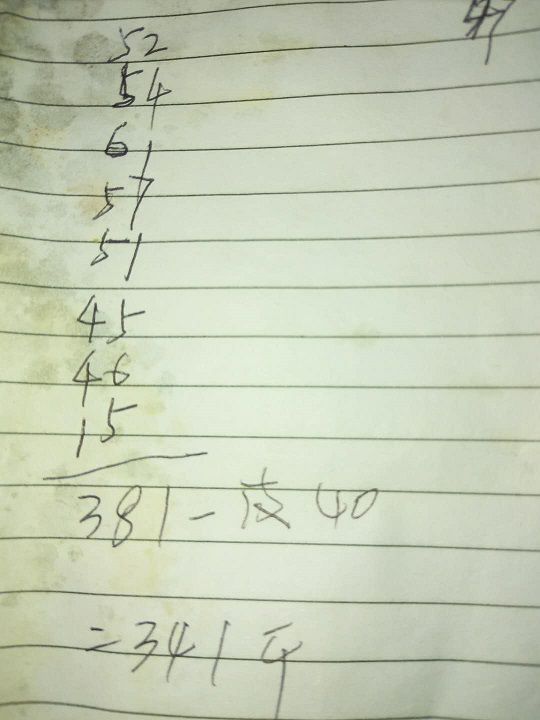 52
54
61
57
51
45
46
15
381-皮40
=341斤